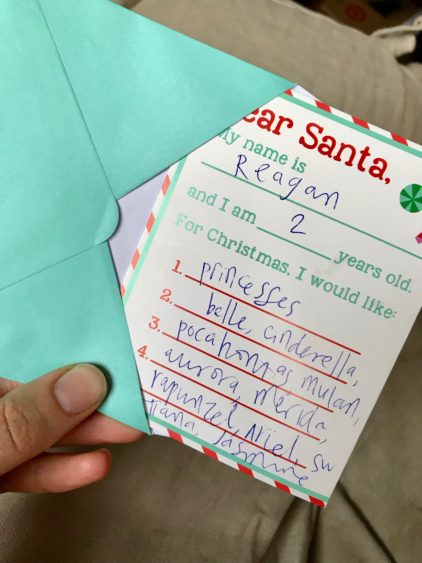 ear Santa,
y name is
Reagan
and I am 2 years old.
For Christmas, I would like:
1. princesses
2. belle, cinderella,
3. pocahontas, mulan,
4. aurora, merida,
rapunzel, Ariel, sw
tiana, Jasmine